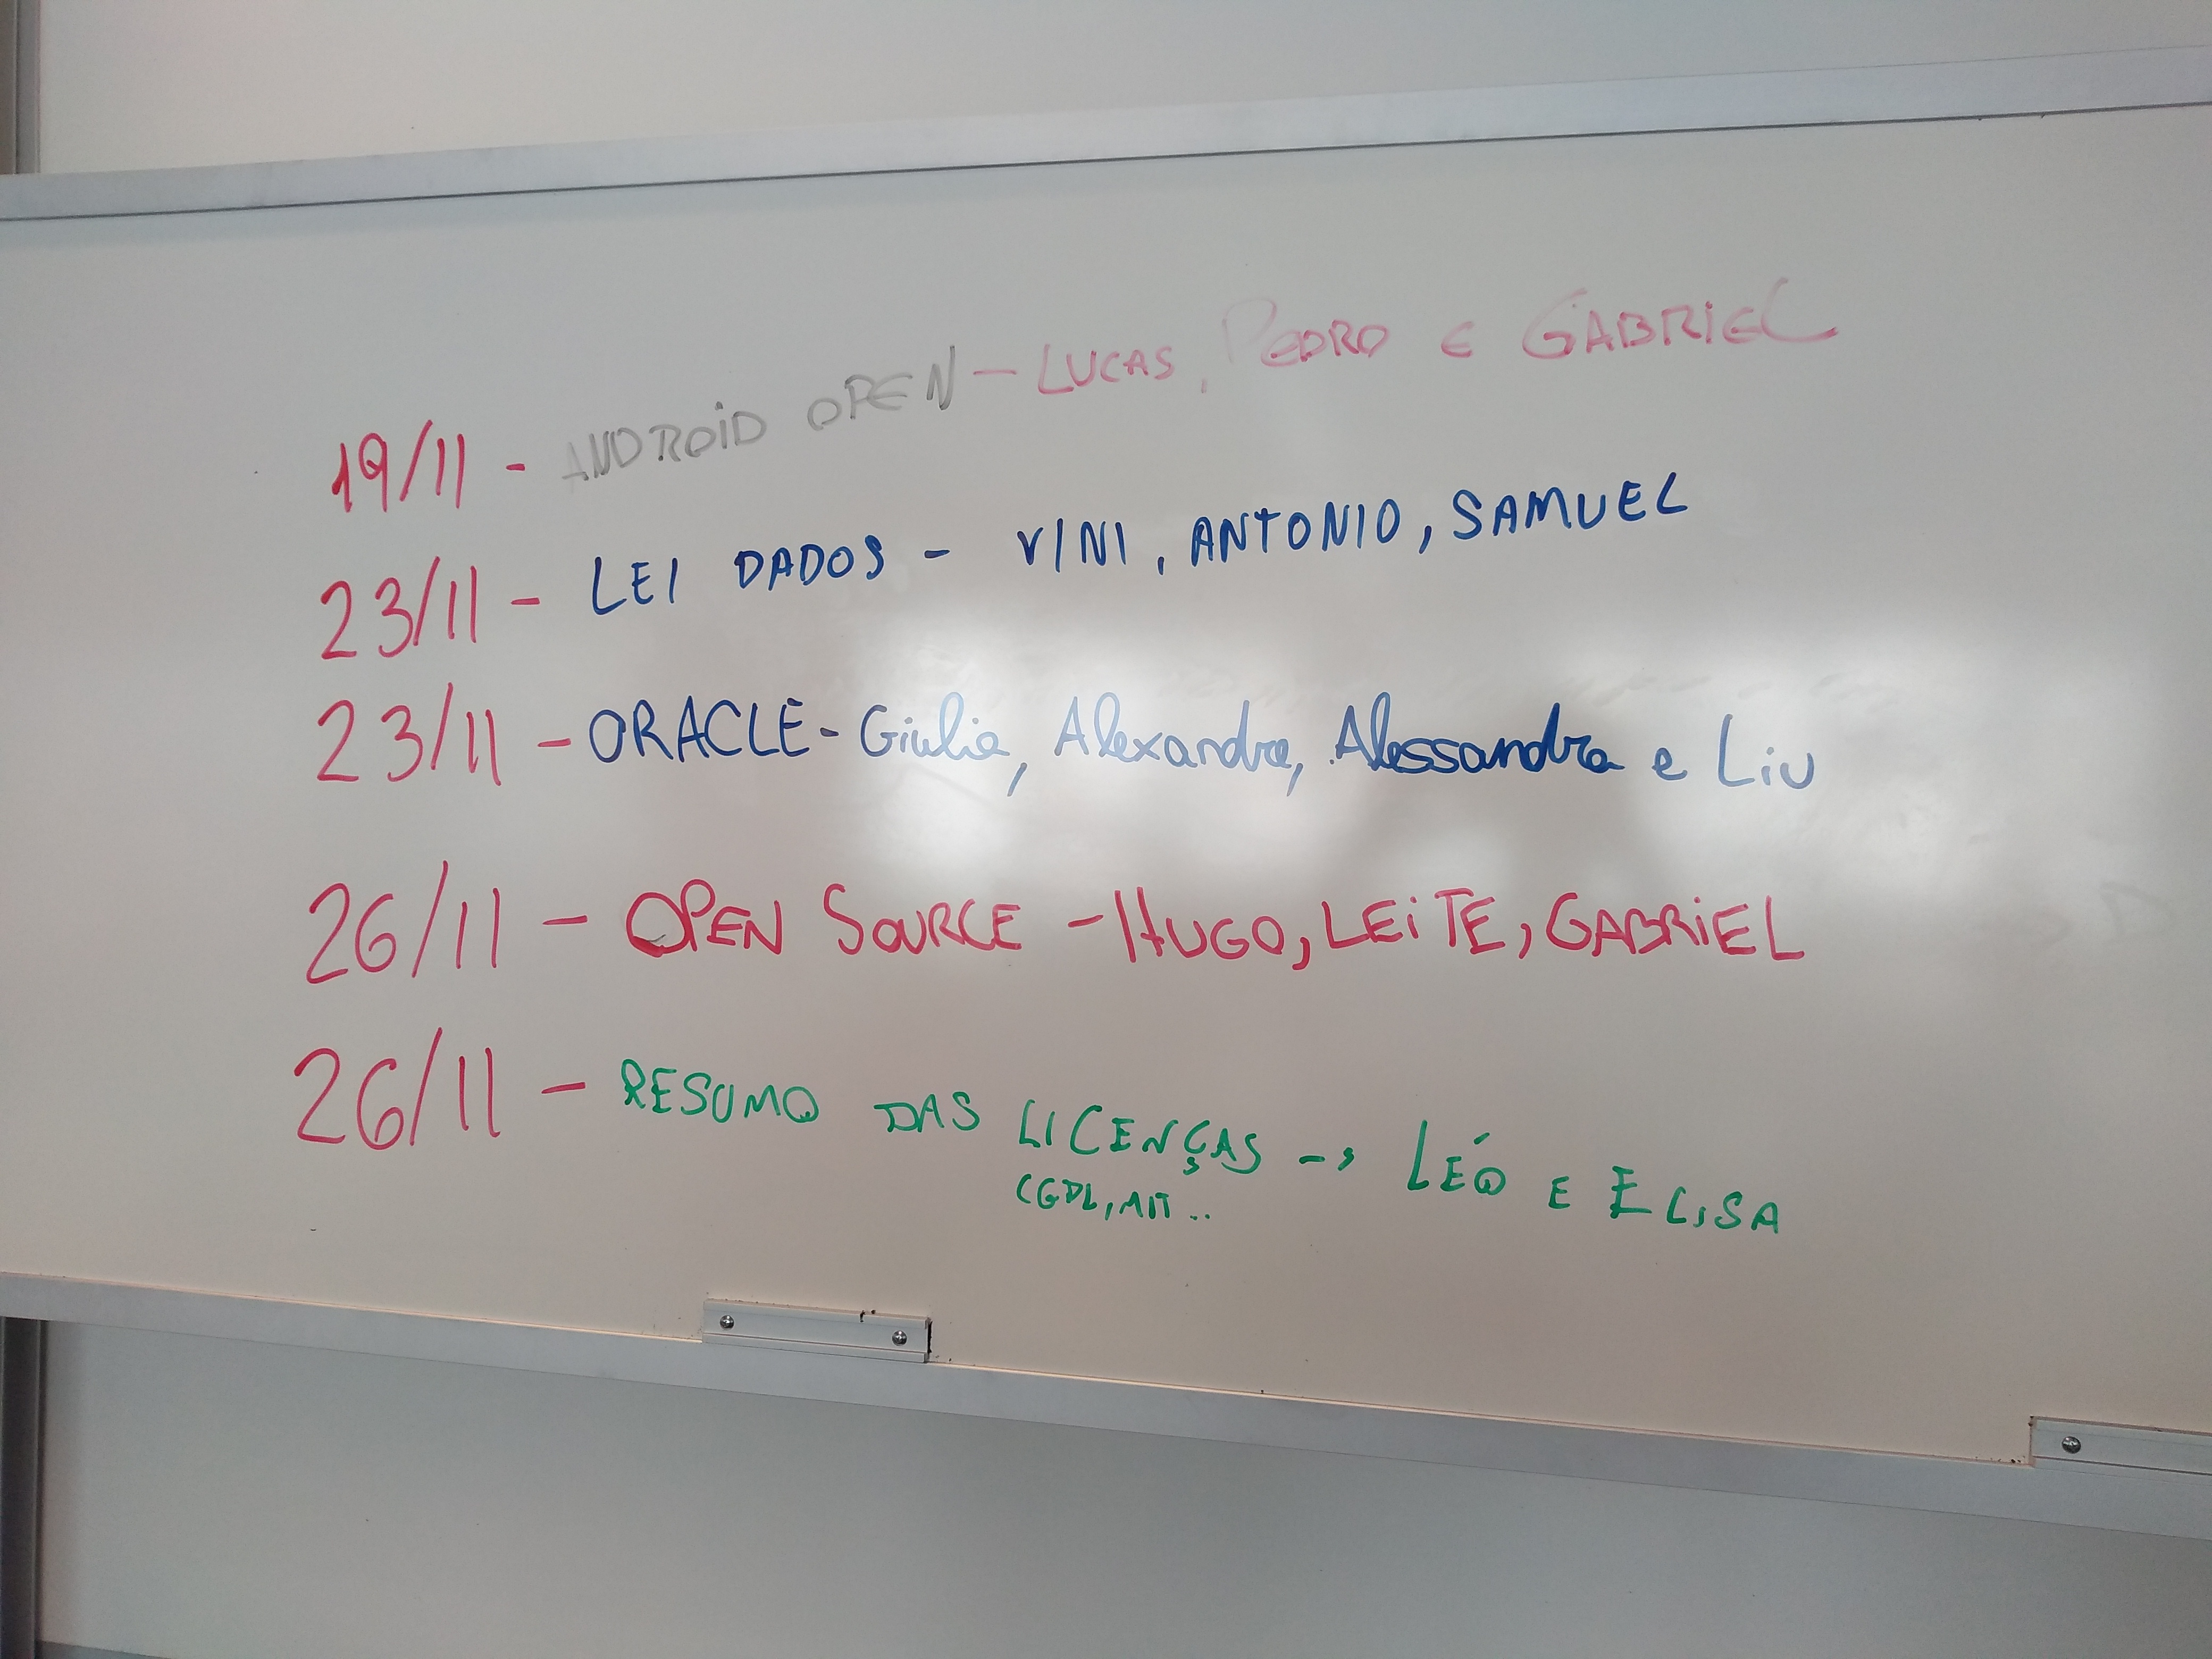 19/11 - ANDROID OPEN - LUCAS, PEDRO E GABRIEL
23/11 - LEI DADOS - VINI, ANTONIO, SAMUEL
23/11 - ORACLE - Giulia, Alexandre, Alessandra e Liu
26/11 - OPEN SOURCE - HUGO, LEITE, GABRIEL
26/11 - RESUMO DAS LICENÇAS -> LÉO E ELISA
CGDL, MIT ..